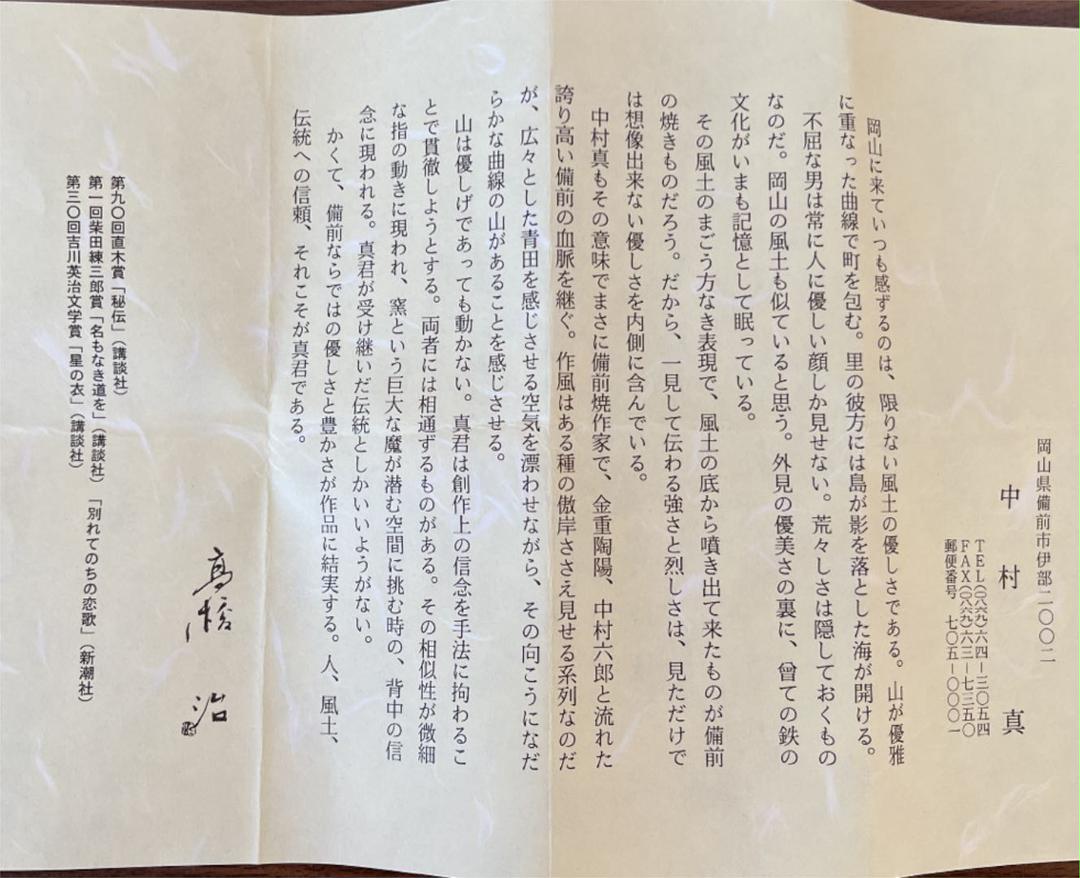 岡山県備前市伊部二〇〇二
中村 真
TEL(〇八六九)六四-三〇五四
FAX(〇八六九)六三-七三五〇
郵便番号 七〇五-〇〇〇一
岡山に来ていつも感ずるのは、限りない風土の優しさである。山が優雅
に重なった曲線で町を包む。里の彼方には島が影を落とした海が開ける。
不屈な男は常に人に優しい顔しか見せない。荒々しさは隠しておくもの
なのだ。岡山の風土も似ていると思う。外見の優美さの裏に、曾ての鉄の
文化がいまも記憶として眠っている。
その風土のまごう方なき表現で、風土の底から噴き出て来たものが備前
の焼きものだろう。だから、一見して伝わる強さと烈しさは、見ただけで
は想像出来ない優しさを内側に含んでいる。
中村真もその意味でまさに備前焼作家で、金重陶陽、中村六郎と流れた
誇り高い備前の血脈を継ぐ。作風はある種の傲岸ささえ見せる系列なのだ
が、広々とした青田を感じさせる空気を漂わせながら、その向こうになだ
らかな曲線の山があることを感じさせる。
山は優しげであっても動かない。真君は創作上の信念を手法に拘わるこ
とで貫徹しようとする。両者には相通ずるものがある。その相似性が微細
な指の動きに現われ、窯という巨大な魔が潜む空間に挑む時の、背中の信
念に現われる。真君が受け継いだ伝統としかいいようがない。
かくて、備前ならではの優しさと豊かさが作品に結実する。人、風土、
伝統への信頼、それこそが真君である。
高橋 治
第九〇回直木賞「秘伝」(講談社)
第一回柴田練三郎賞「名もなき道を」(講談社) 「別れてのちの恋歌」(新潮社)
第三〇回吉川英治文学賞「星の衣」(講談社)